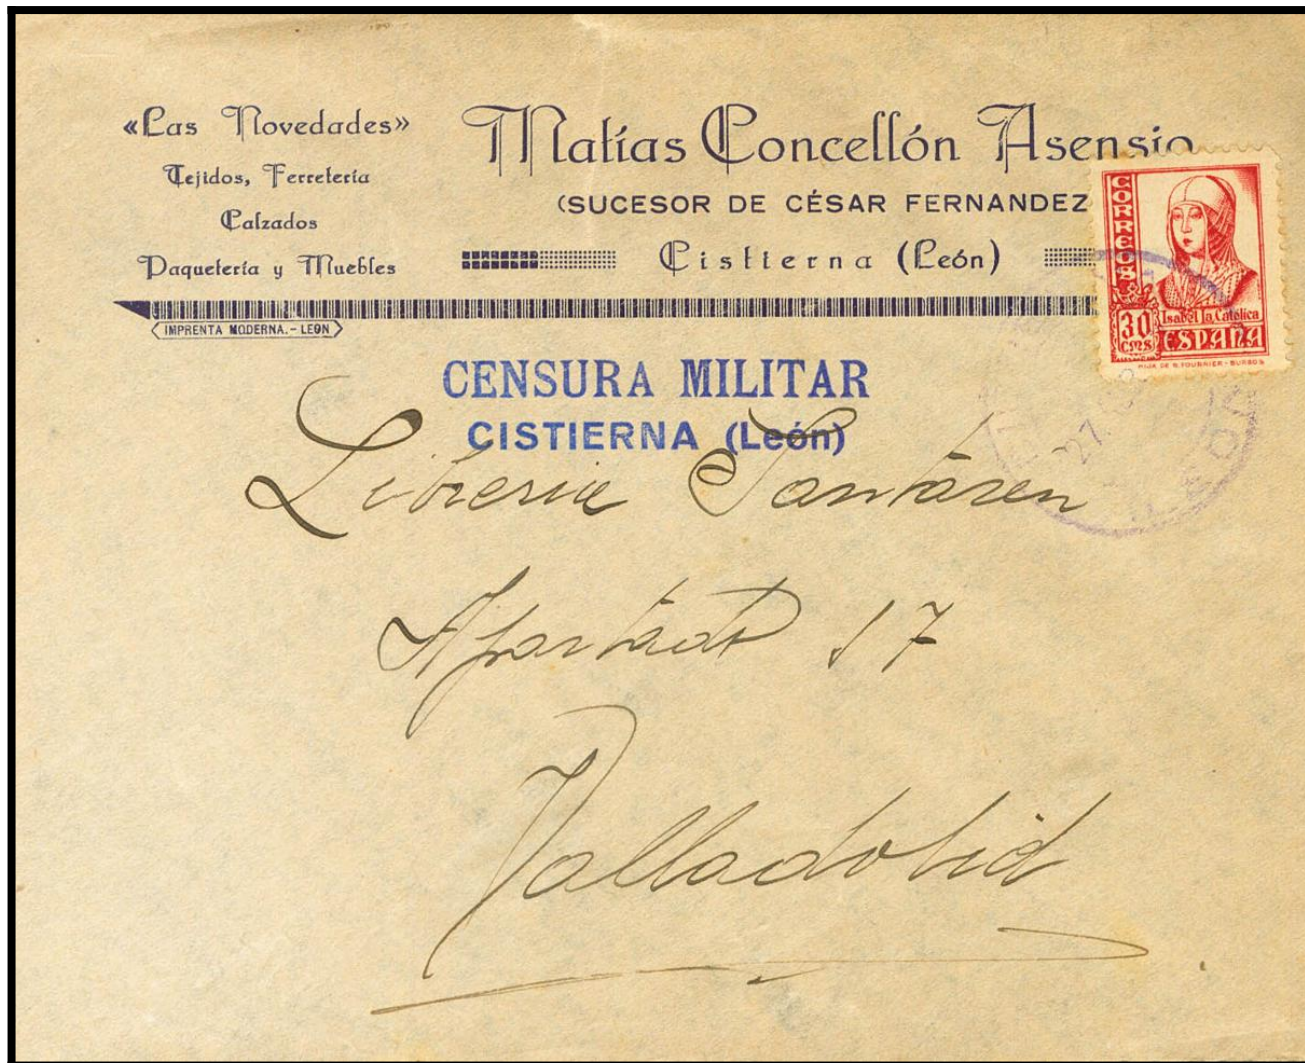 «Las Novedades»
Tejidos, Ferretería
Calzados
Paquetería y Muebles
Matías Concellón Asensio
(SUCESOR DE CÉSAR FERNANDEZ
Cistierna (León)
IMPRENTA MODERNA.-LEON
CORREOS
30
CMS
Isabel la Católica
ESPAÑA
HIJA DE B. FOURNIER-BURGOS
CENSURA MILITAR
CISTIERNA (León)
Libreria Santaren
Apartado 17
Valladolid
27